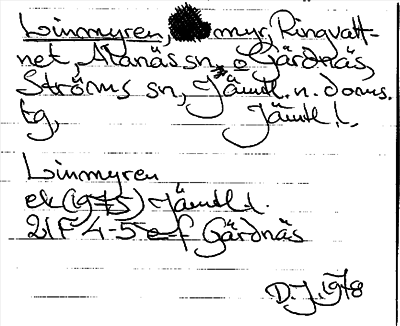 Linmyren, myr, Ringvatt-
net, Alanäs sn, o Gärdnäs,
Ströms sn, Jämtl. n. doms.
tg, Jämtl. l.
Linmyren
ek (1945) Jämtl. l.
21F 4-5 e-f Gärdnäs
D.J. 1978